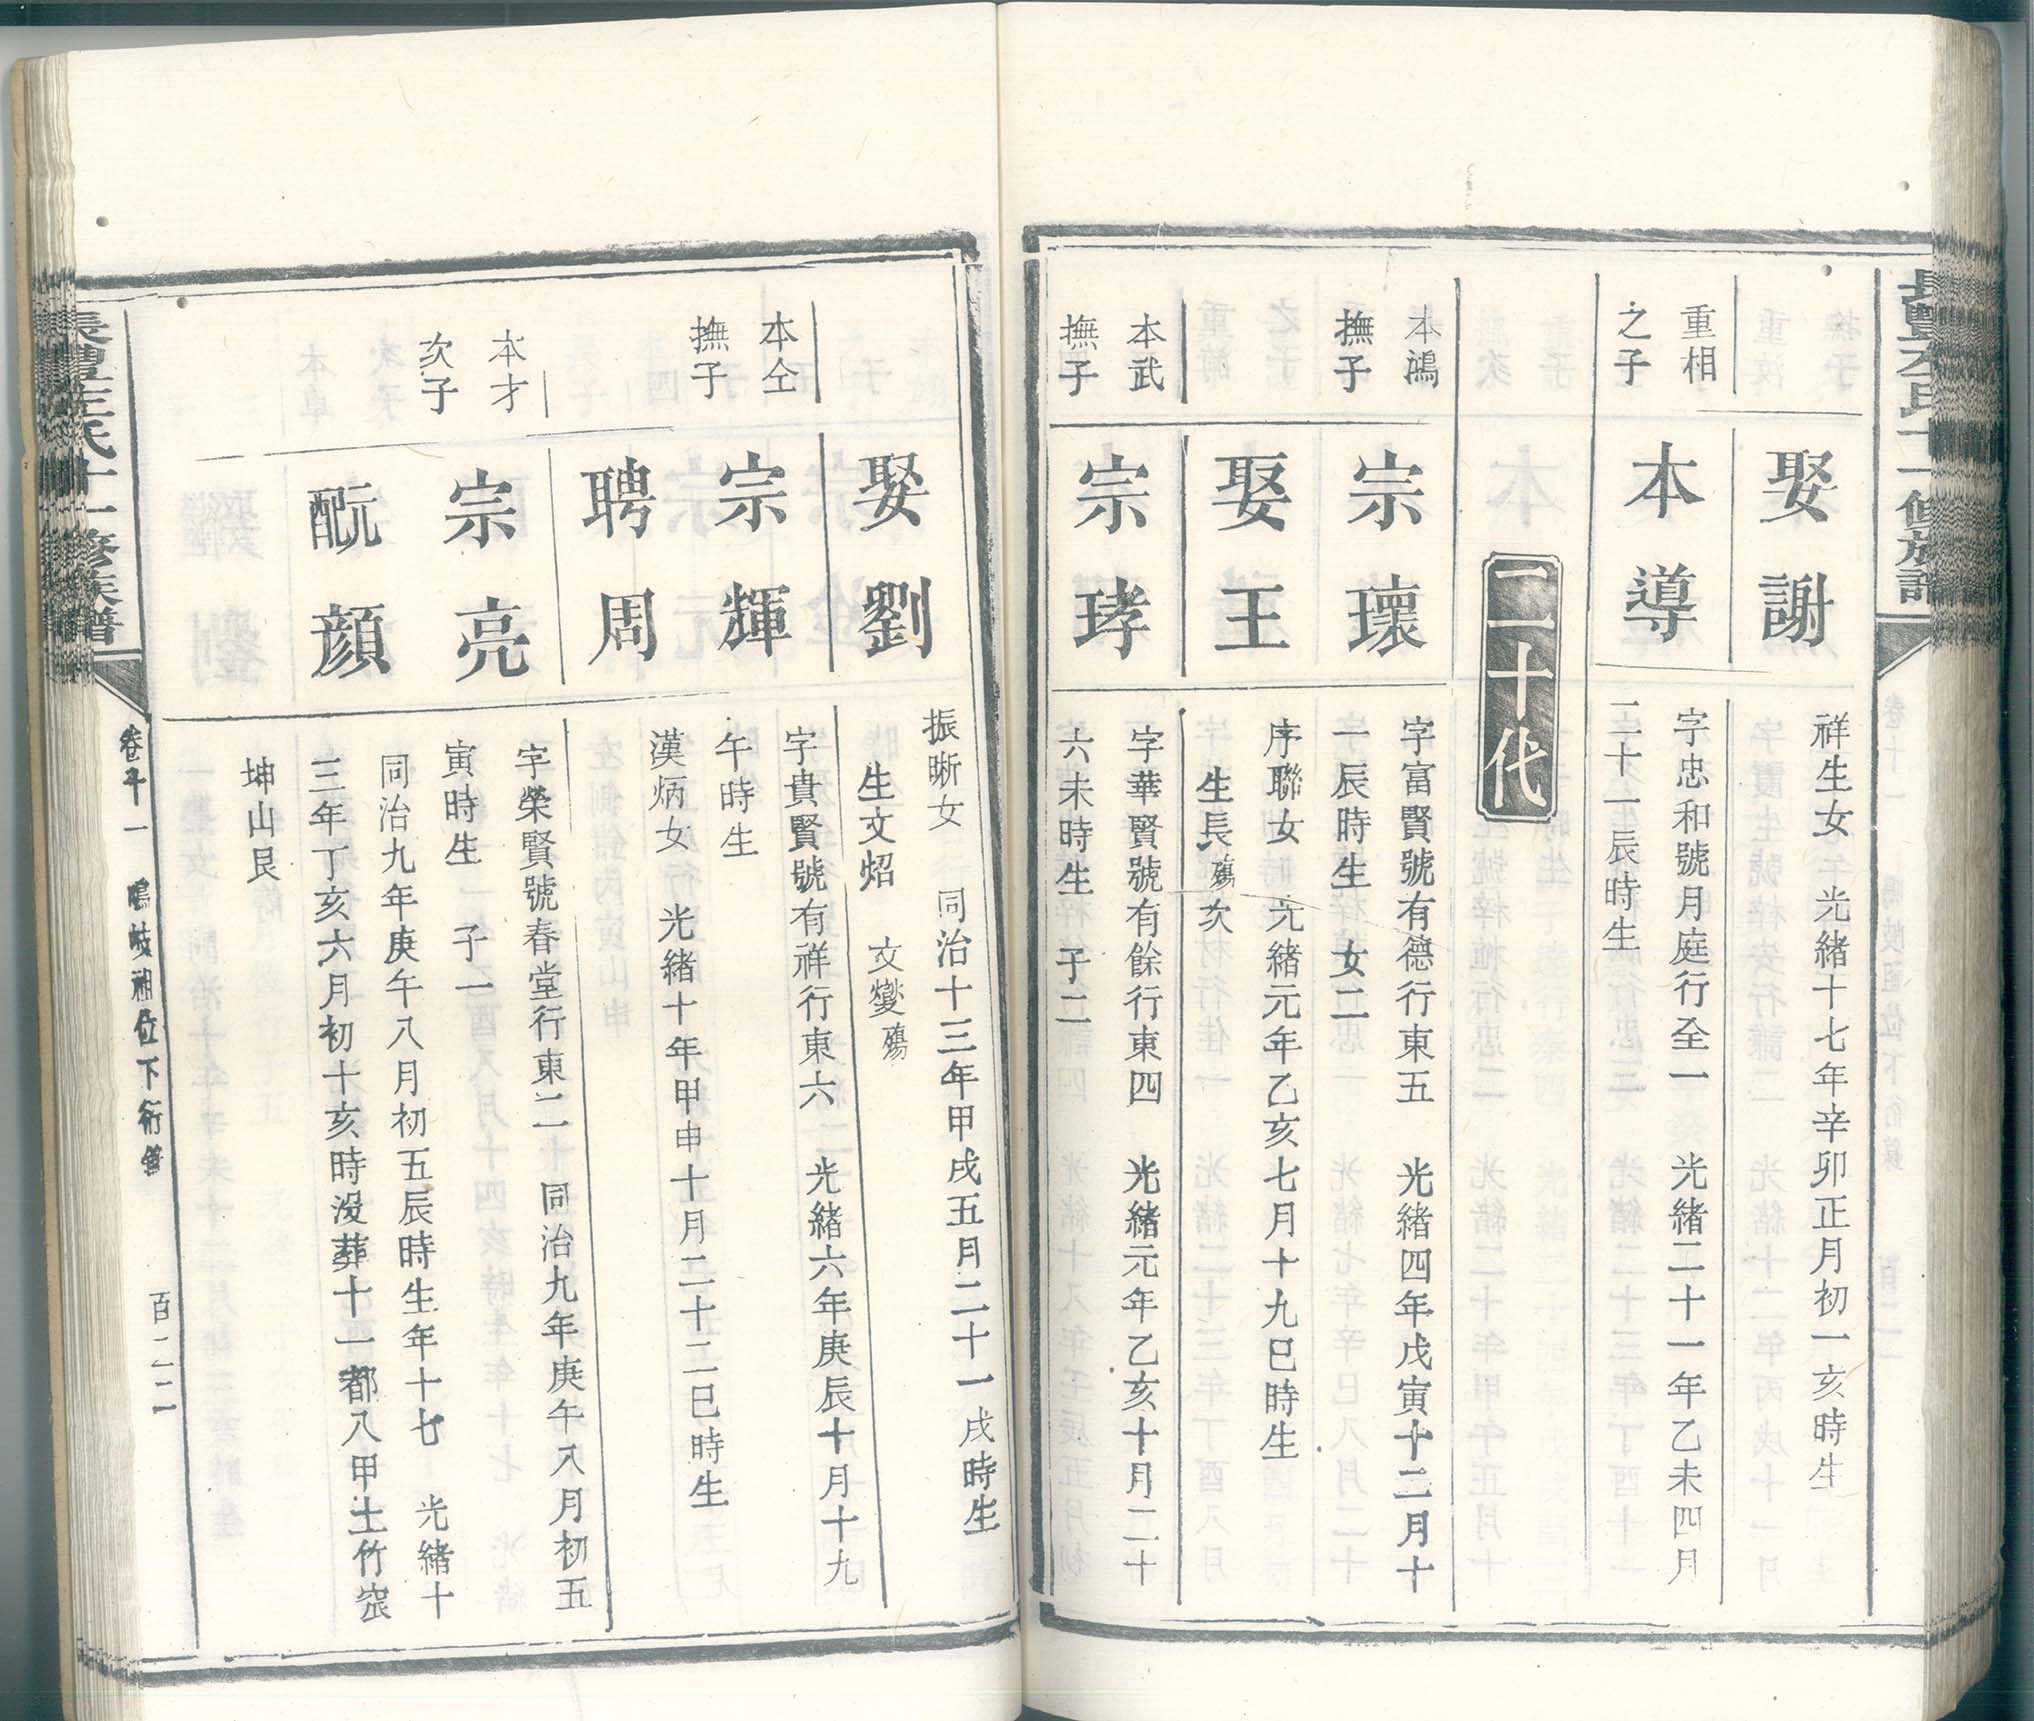 娶謝
祥生女 光緒十七年辛卯正月初一亥時生
重相
之子
本導
字忠和號月庭行全一 光緒二十一年乙未四月
二十一辰時生
二十代
本鴻
撫子
宗瓌
字富賢號有德行東五 光緒四年戊寅十二月十
一辰時生 女二
娶王
序聯女 光緒元年乙亥七月十九巳時生
生長殤次
本武
撫子
宗㻒
字華賢號有餘行東四 光緒元年乙亥十月二十
六未時生 子二
娶劉
振晰女 同治十三年甲戌五月二十一戌時生
生文炤 文燮殤
本仝
撫子
宗輝
字貴賢號有祥行東六 光緒六年庚辰十月十九
午時生
聘周
漢炳女 光緒十年甲申十月二十二巳時生
本才
次子
宗亮
字榮賢號春堂行東二 同治九年庚午八月初五
寅時生 子一
配元顏
同治九年庚午八月初五辰時生年十七 光緒十
三年丁亥六月初十亥時没葬十一都八甲土竹窊
坤山艮
氏十一修族譜
鳴岐 位下衍
百二二